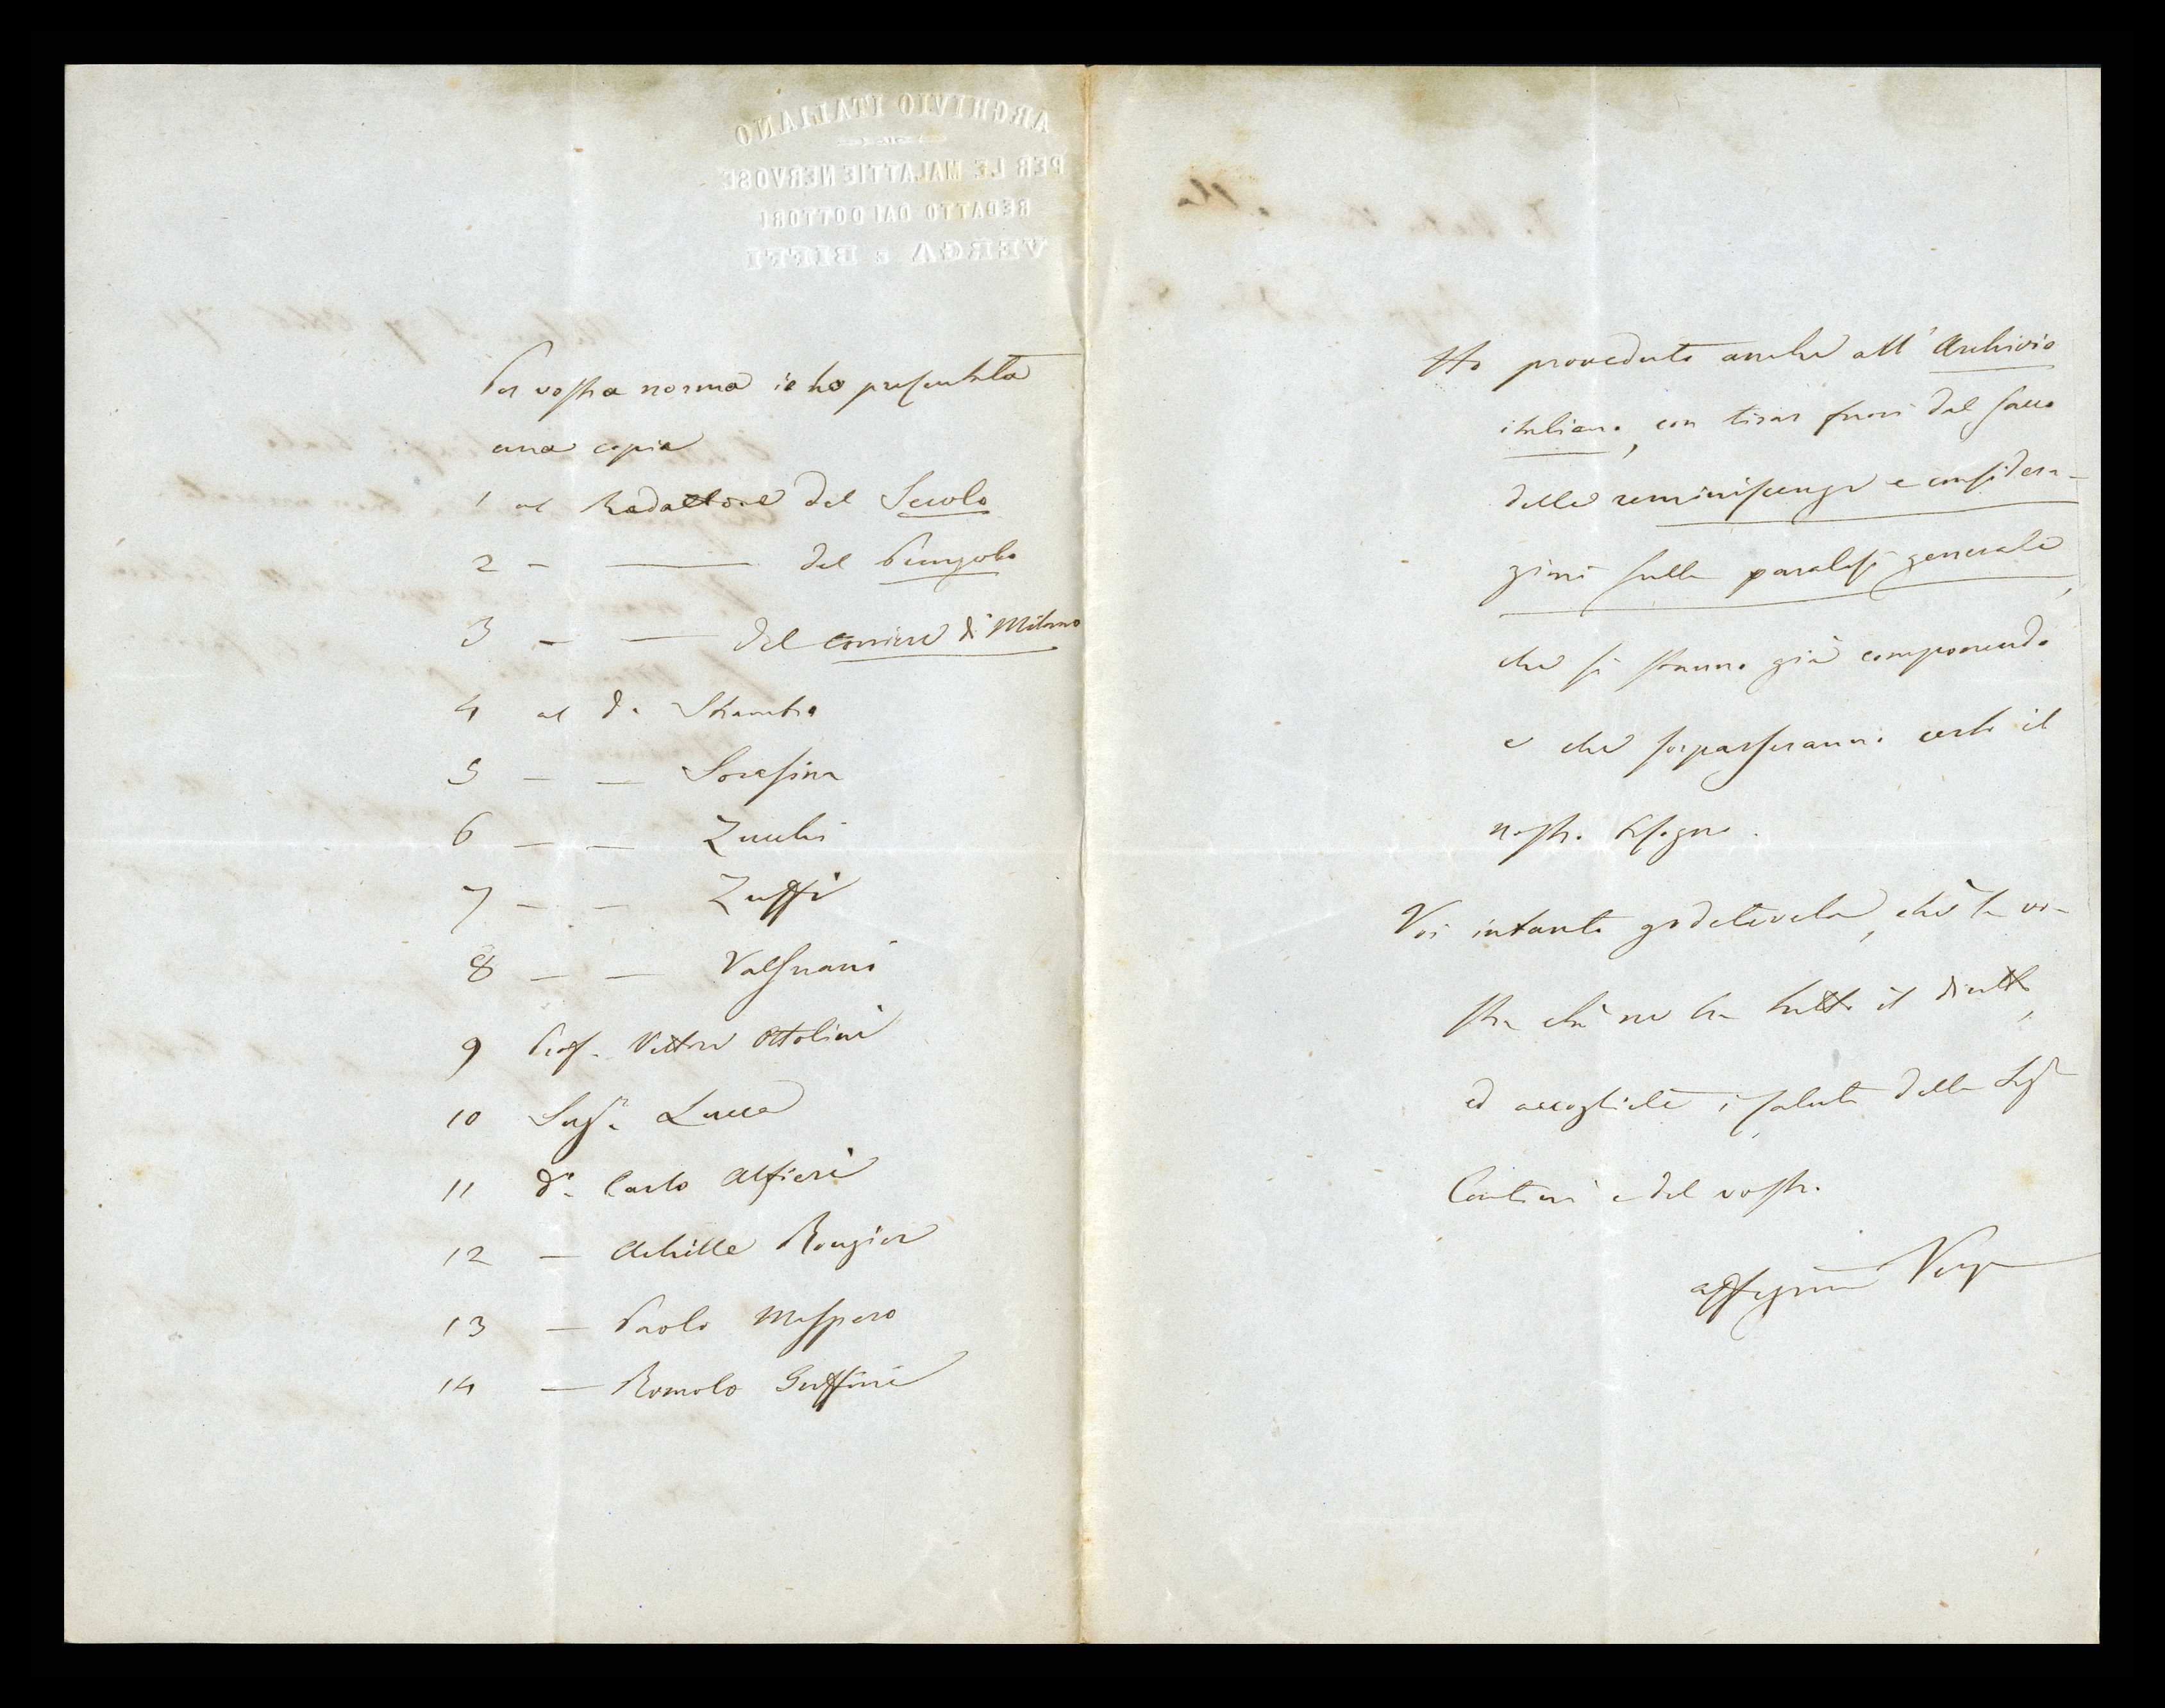 ARCHIVIO ITALIANO
PER LE MALATTIE NERVOSE
REDATTO DAI DOTTORI
VERGA E BIFFI
Per vostra norma io ho presentata
una copia
1 al Redattore del Secolo
2 — — del Pungolo
3 — — del Corriere di Milano
4 al Dr Strambio
5 — — Soresina
6 — — Zucchi
7 — — Zuffi
8 — — Valsuani
9 Prof. Vittore Ottolini
10 Sigr. Lucca
11 Dr. Carlo Alfieri
12 — Achille Rougier
13 — Paolo Maspero
14 — Romolo Griffini
Ho proveduto anche all'Archivio
italiano, con tirar fuori dal sacco
delle reminiscenze e considera-
zioni sulla paralisi generale,
che si stanno già componendo
e che sorpasseranno certo il
nostro bisogno.
Voi intanto godetevela, chè la vo-
stra chè ne ha tutto il diritto,
ed accogliete i saluti della Sigra
e del vostro
affezmo Verga